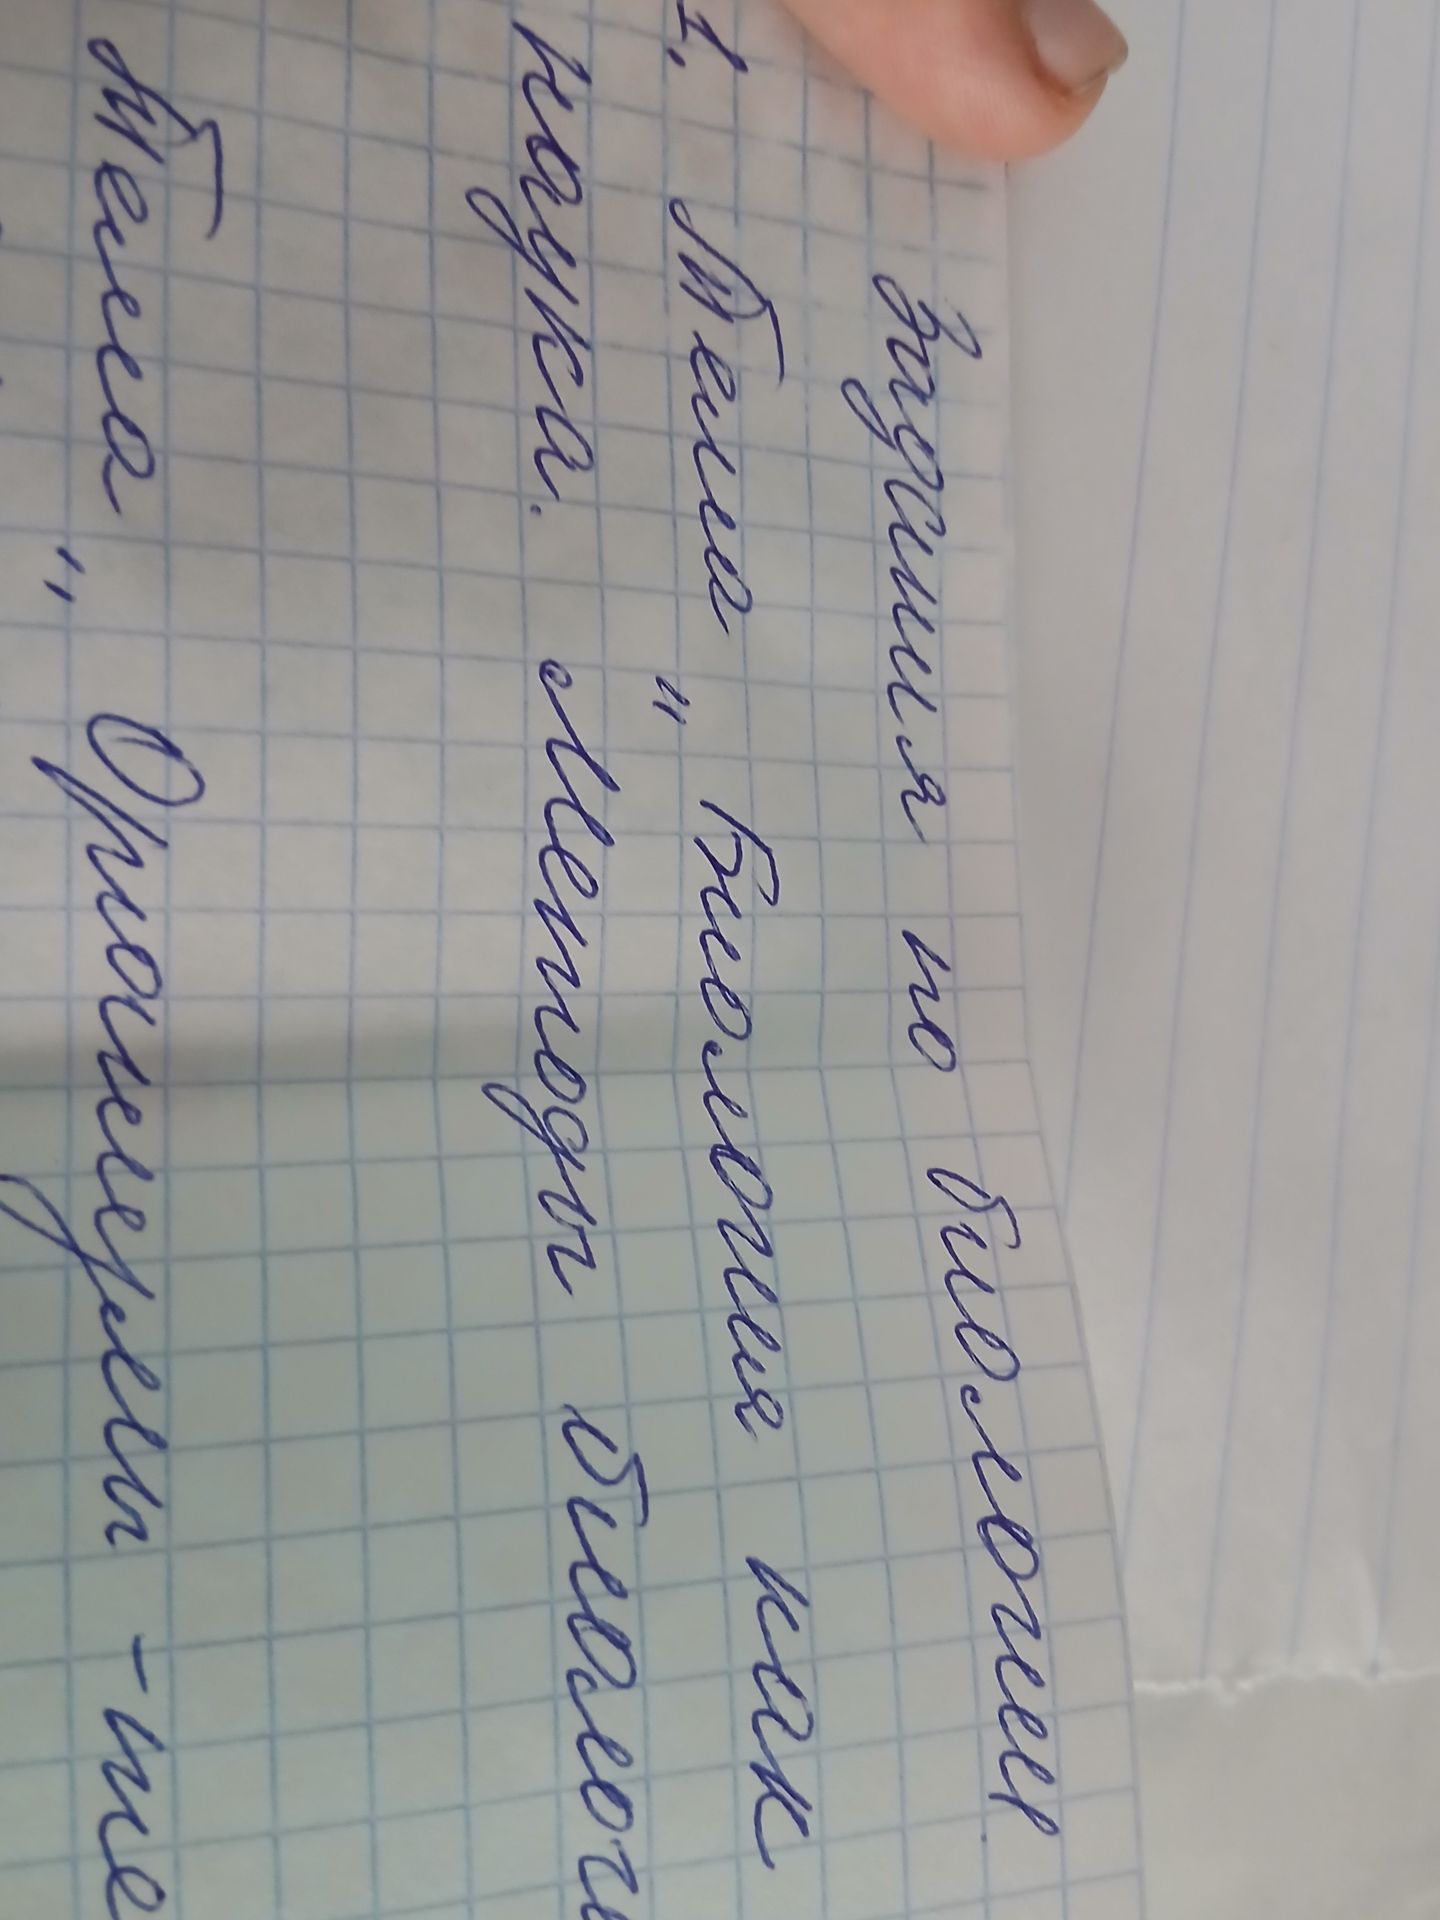 Задания по биологии
1. Тема „Биология как
наука. Методы биологи
Тема „Органеллы - це